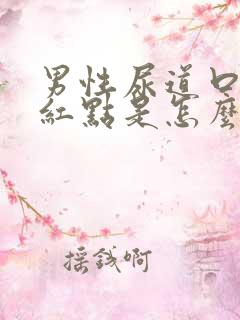 男性尿道口
紅點是怎麼
採錢啊